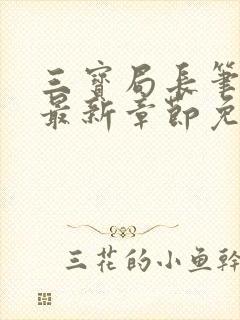 三寶局長筆
最新章節免
三花的小鱼幹